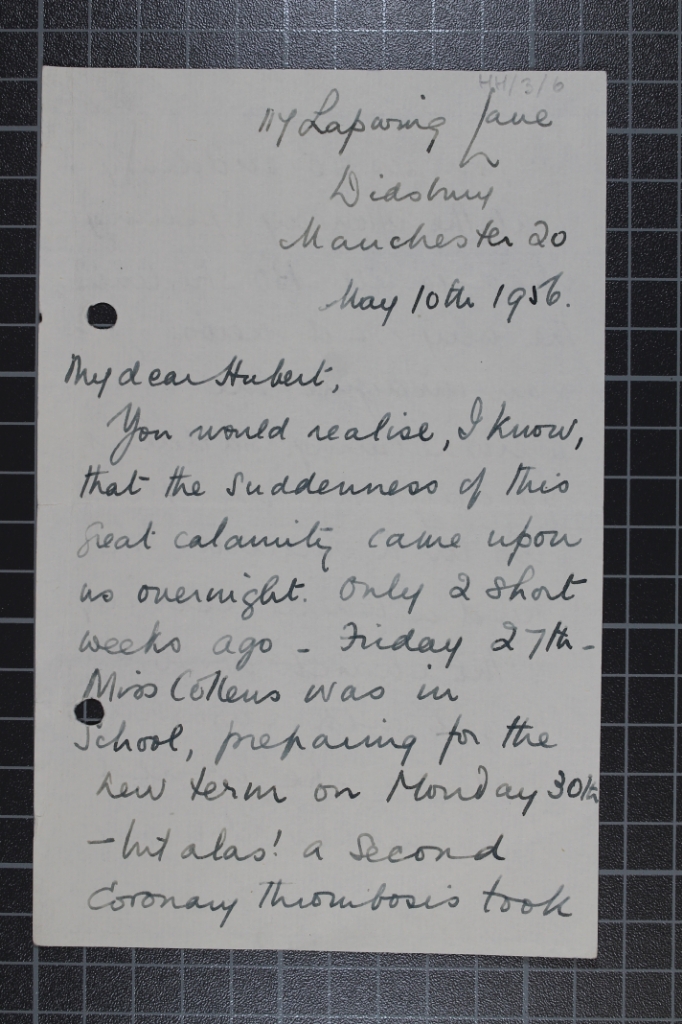 HH/3/6
Lapwing Lane
Didsbury
Manchester 20
May 10th 1956.
My dear Hubert,
You would realise, I know,
that the suddenness of this
great calamity came upon
us overnight. Only 2 short
weeks ago - Friday 27th -
Miss Collens was in
School, preparing for the
new term on Monday 30th
- but alas! a second
Coronary Thrombosis took